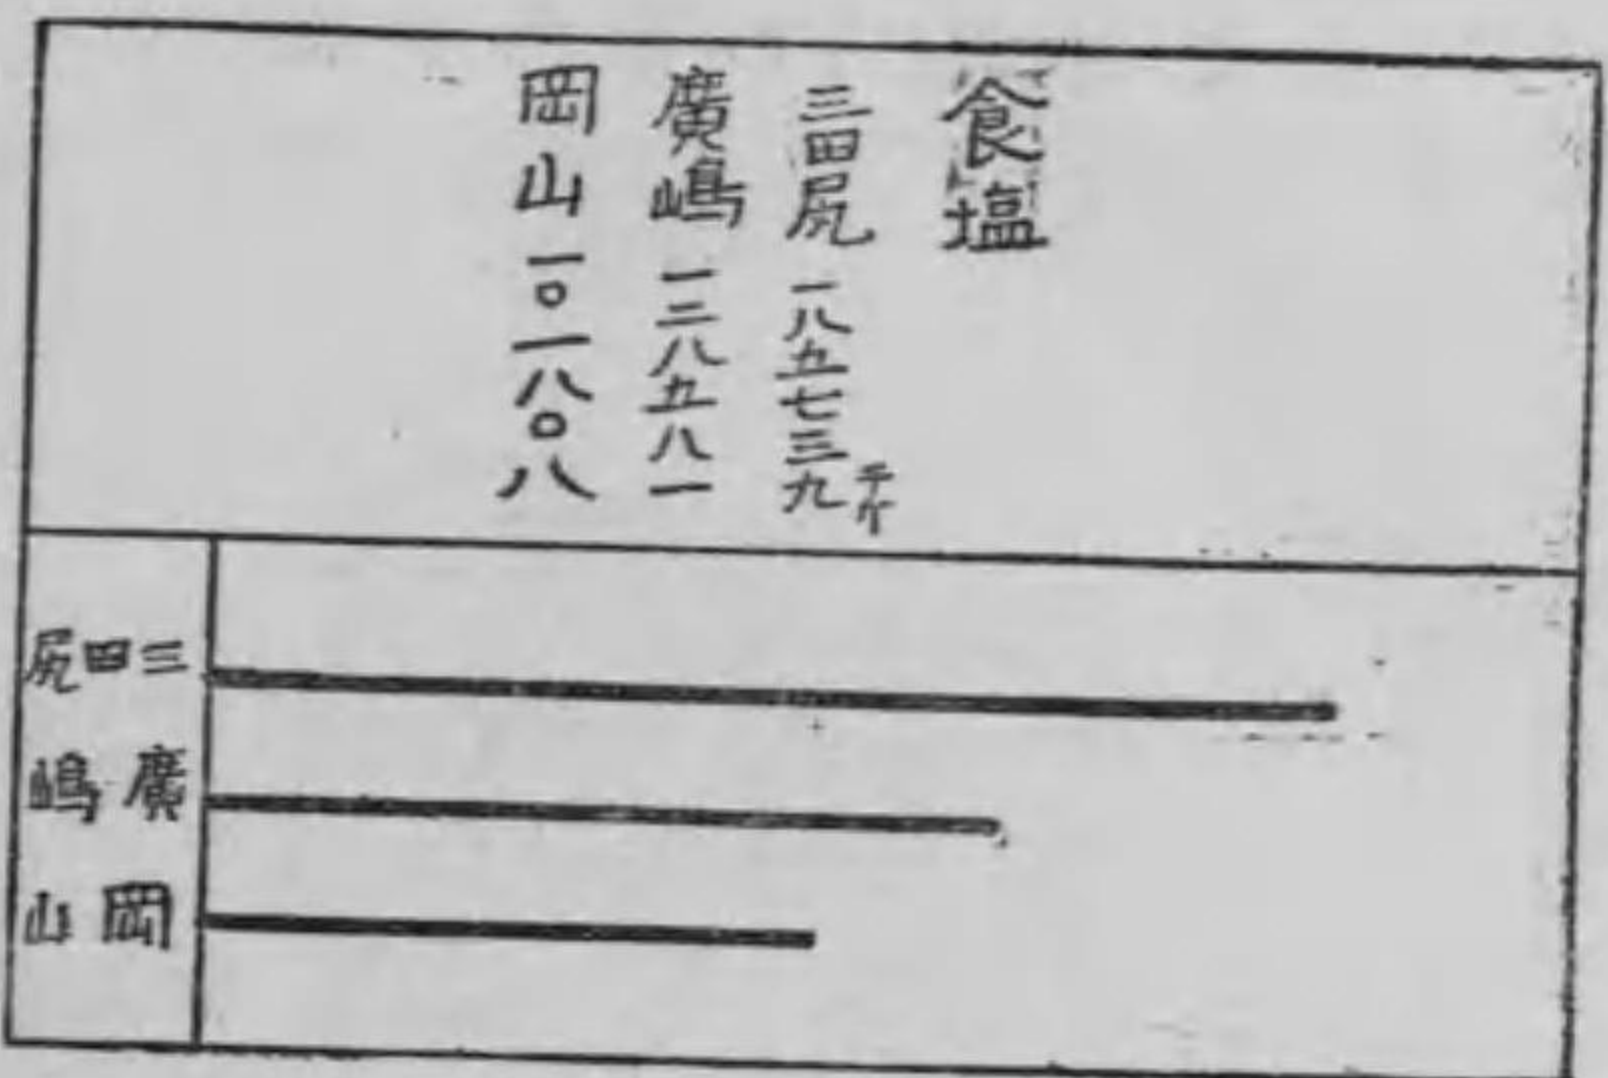 食塩
三田尻 一八五七三九千斤
廣嶋 一三八五八一
岡山 一〇一八〇八
三田尻
廣嶋
岡山